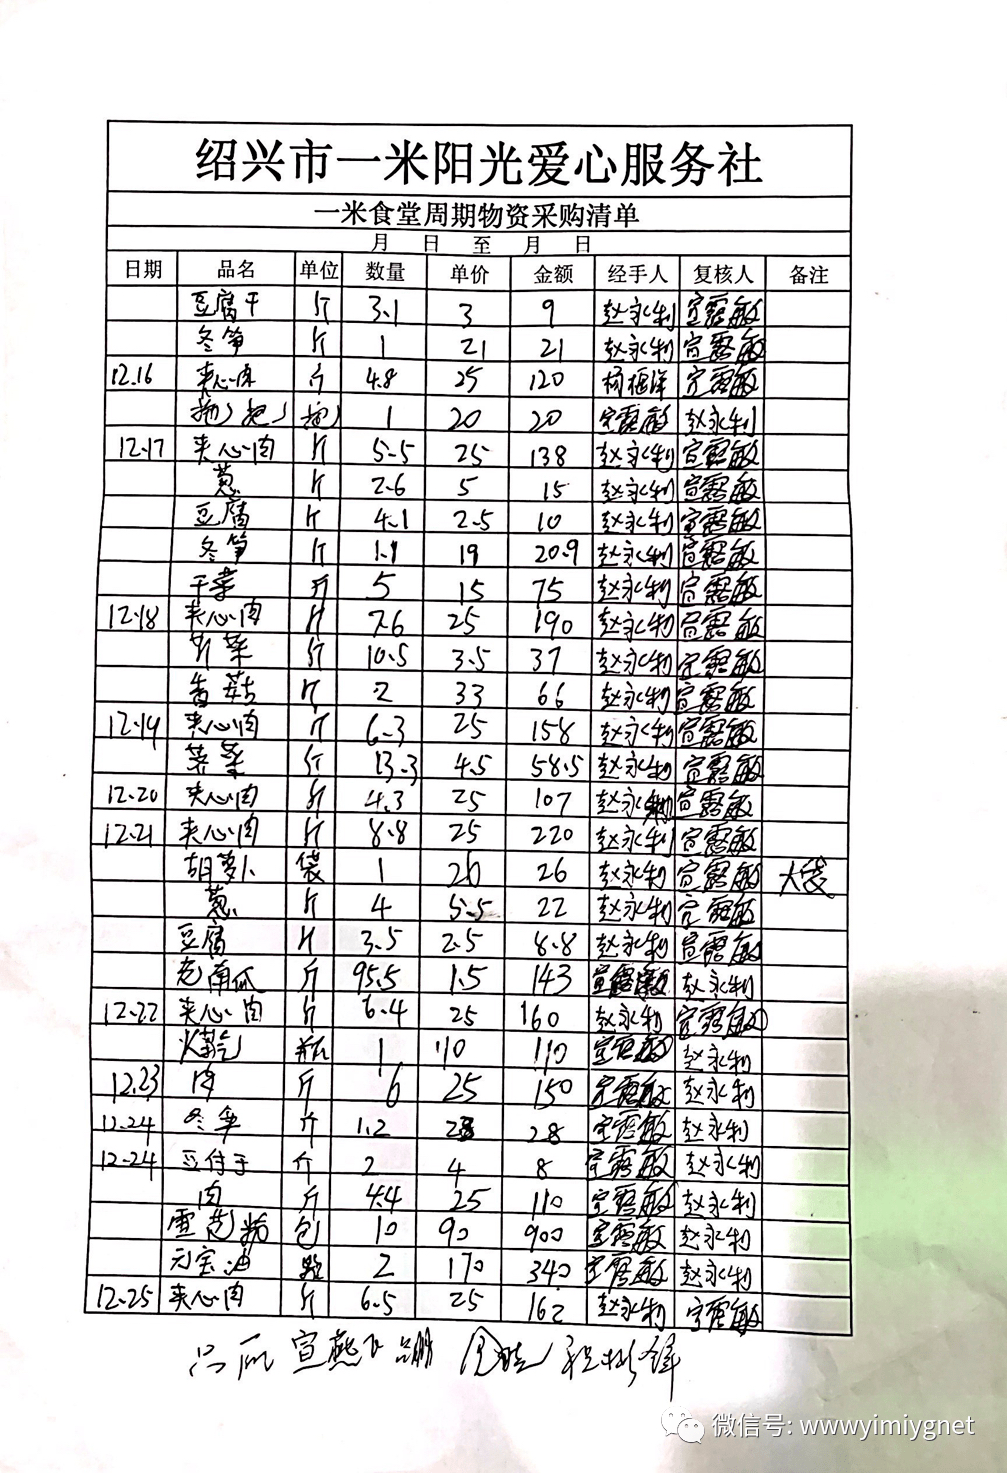 绍兴市一米阳光爱心服务社
一米食堂周期物资采购清单
月 日 至 月 日
日期 品名 单位 数量 单价 金额 经手人 复核人 备注
豆腐干 斤 3.1 3 9 赵永利 宣露敏
冬笋 斤 1 21 21 赵永利 宣露敏
12.16 夹心肉 斤 4.8 25 120 宣露敏
1 20 20 宣露敏 赵永利
12.17 夹心肉 斤 5.5 25 138 赵永利 宣露敏
葱 斤 2.6 5 15 赵永利 宣露敏
豆腐 斤 4.1 2.5 10 赵永利 宣露敏
冬笋 斤 1.1 19 20.9 赵永利 宣露敏
干菜 斤 5 15 75 赵永利 宣露敏
12.18 夹心肉 斤 7.6 25 190 赵永利 宣露敏
芹菜 斤 10.5 3.5 37 赵永利 宣露敏
香菇 斤 2 33 66 赵永利 宣露敏
12.19 夹心肉 斤 6.3 25 158 赵永利 宣露敏
荠菜 斤 13.3 4.5 58.5 赵永利 宣露敏
12.20 夹心肉 斤 4.3 25 107 赵永利 宣露敏
12.21 夹心肉 斤 8.8 25 220 赵永利 宣露敏
胡萝卜 袋 1 26 26 赵永利 宣露敏 大袋
葱 斤 4 5.5 22 赵永利 宣露敏
豆腐 斤 3.5 2.5 8.8 赵永利 宣露敏
老南瓜 斤 95.5 1.5 143 宣露敏 赵永利
12.22 夹心肉 斤 6.4 25 160 赵永利 宣露敏
瓶 1 110 110 宣露敏 赵永利
12.23 肉 斤 6 25 150 宣露敏 赵永利
12.24 冬笋 斤 1.2 28 宣露敏 赵永利
12.24 豆付干 斤 2 4 8 宣露敏 赵永利
肉 斤 4.4 25 110 宣露敏 赵永利
包 10 90 900 宣露敏 赵永利
元宝油 2 170 340 宣露敏 赵永利
12.25 夹心肉 斤 6.5 25 162 赵永利 宣露敏
宣燕飞
微信号: wwwyimiygnet